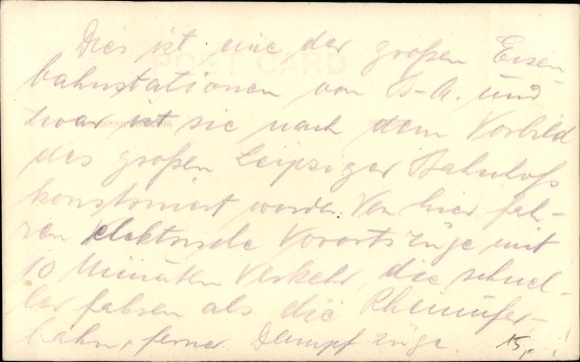 Dies ist eine der großen Eisen-
POST CARD
bahnstationen von B-A. und
zwar ist sie nach dem Vorbild
des großen Leipziger Bahnhofs
konstruiert worden. Von hier fah-
ren elektrische Vorortszüge mit
10 Minuten Verkehr, die schnel-
ler fahren als die Rheinufer-
bahn, ferner Dampfzüge. 15,-